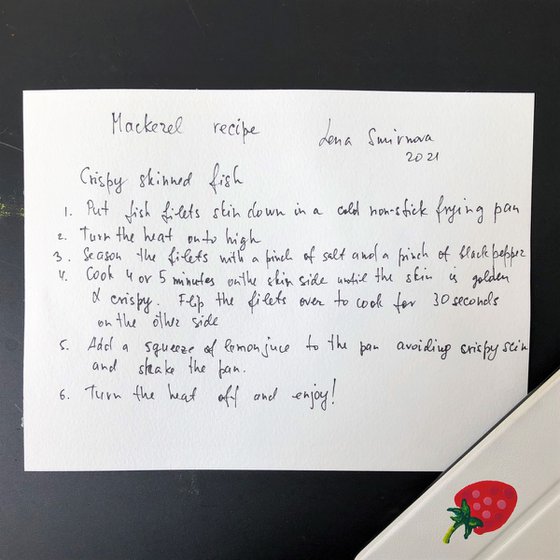 Mackerel recipe
Lena Smirnova
2021
Crispy skinned fish
1. Put fish filets skin down in a cold non-stick frying pan
2. Turn the heat onto high
3. Season the filets with a pinch of salt and a pinch of black pepper
4. Cook 4 or 5 minutes on the skin side until the skin is golden
& crispy. Flip the filets over to cook for 30 seconds
on the other side
5. Add a squeeze of lemon juce to the pan avoiding crispy skin
and shake the pan.
6. Turn the heat off and enjoy!